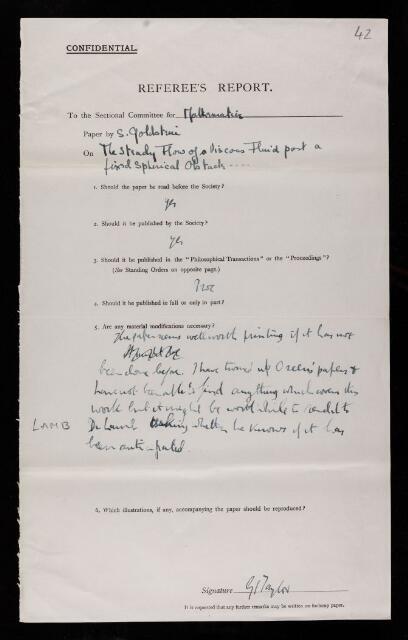 42
CONFIDENTIAL.
REFEREE'S REPORT.
To the Sectional Committee for Mathematics
Paper by S. Goldstein
On The Steady Flow of a Viscous Fluid past a
fixed Spherical Obstacle ....
1. Should the paper be read before the Society?
Yes
2. Should it be published by the Society?
Yes
3. Should it be published in the "Philosophical Transactions" or the "Proceedings"?
(See Standing Orders on opposite page.)
Proc
4. Should it be published in full or only in part?
5. Are any material modifications necessary?
The paper seems well worth printing if it has not
been done before. I have turned up Oseen's papers &
have not been able to find anything which covers this
work but it might be worth while to send it to
LAMB
Dr Lamb asking whether he knows if it has
been anticipated.
6. Which illustrations, if any, accompanying the paper should be reproduced?
Signature GI Taylor
It is requested that any further remarks may be written on the loose paper.